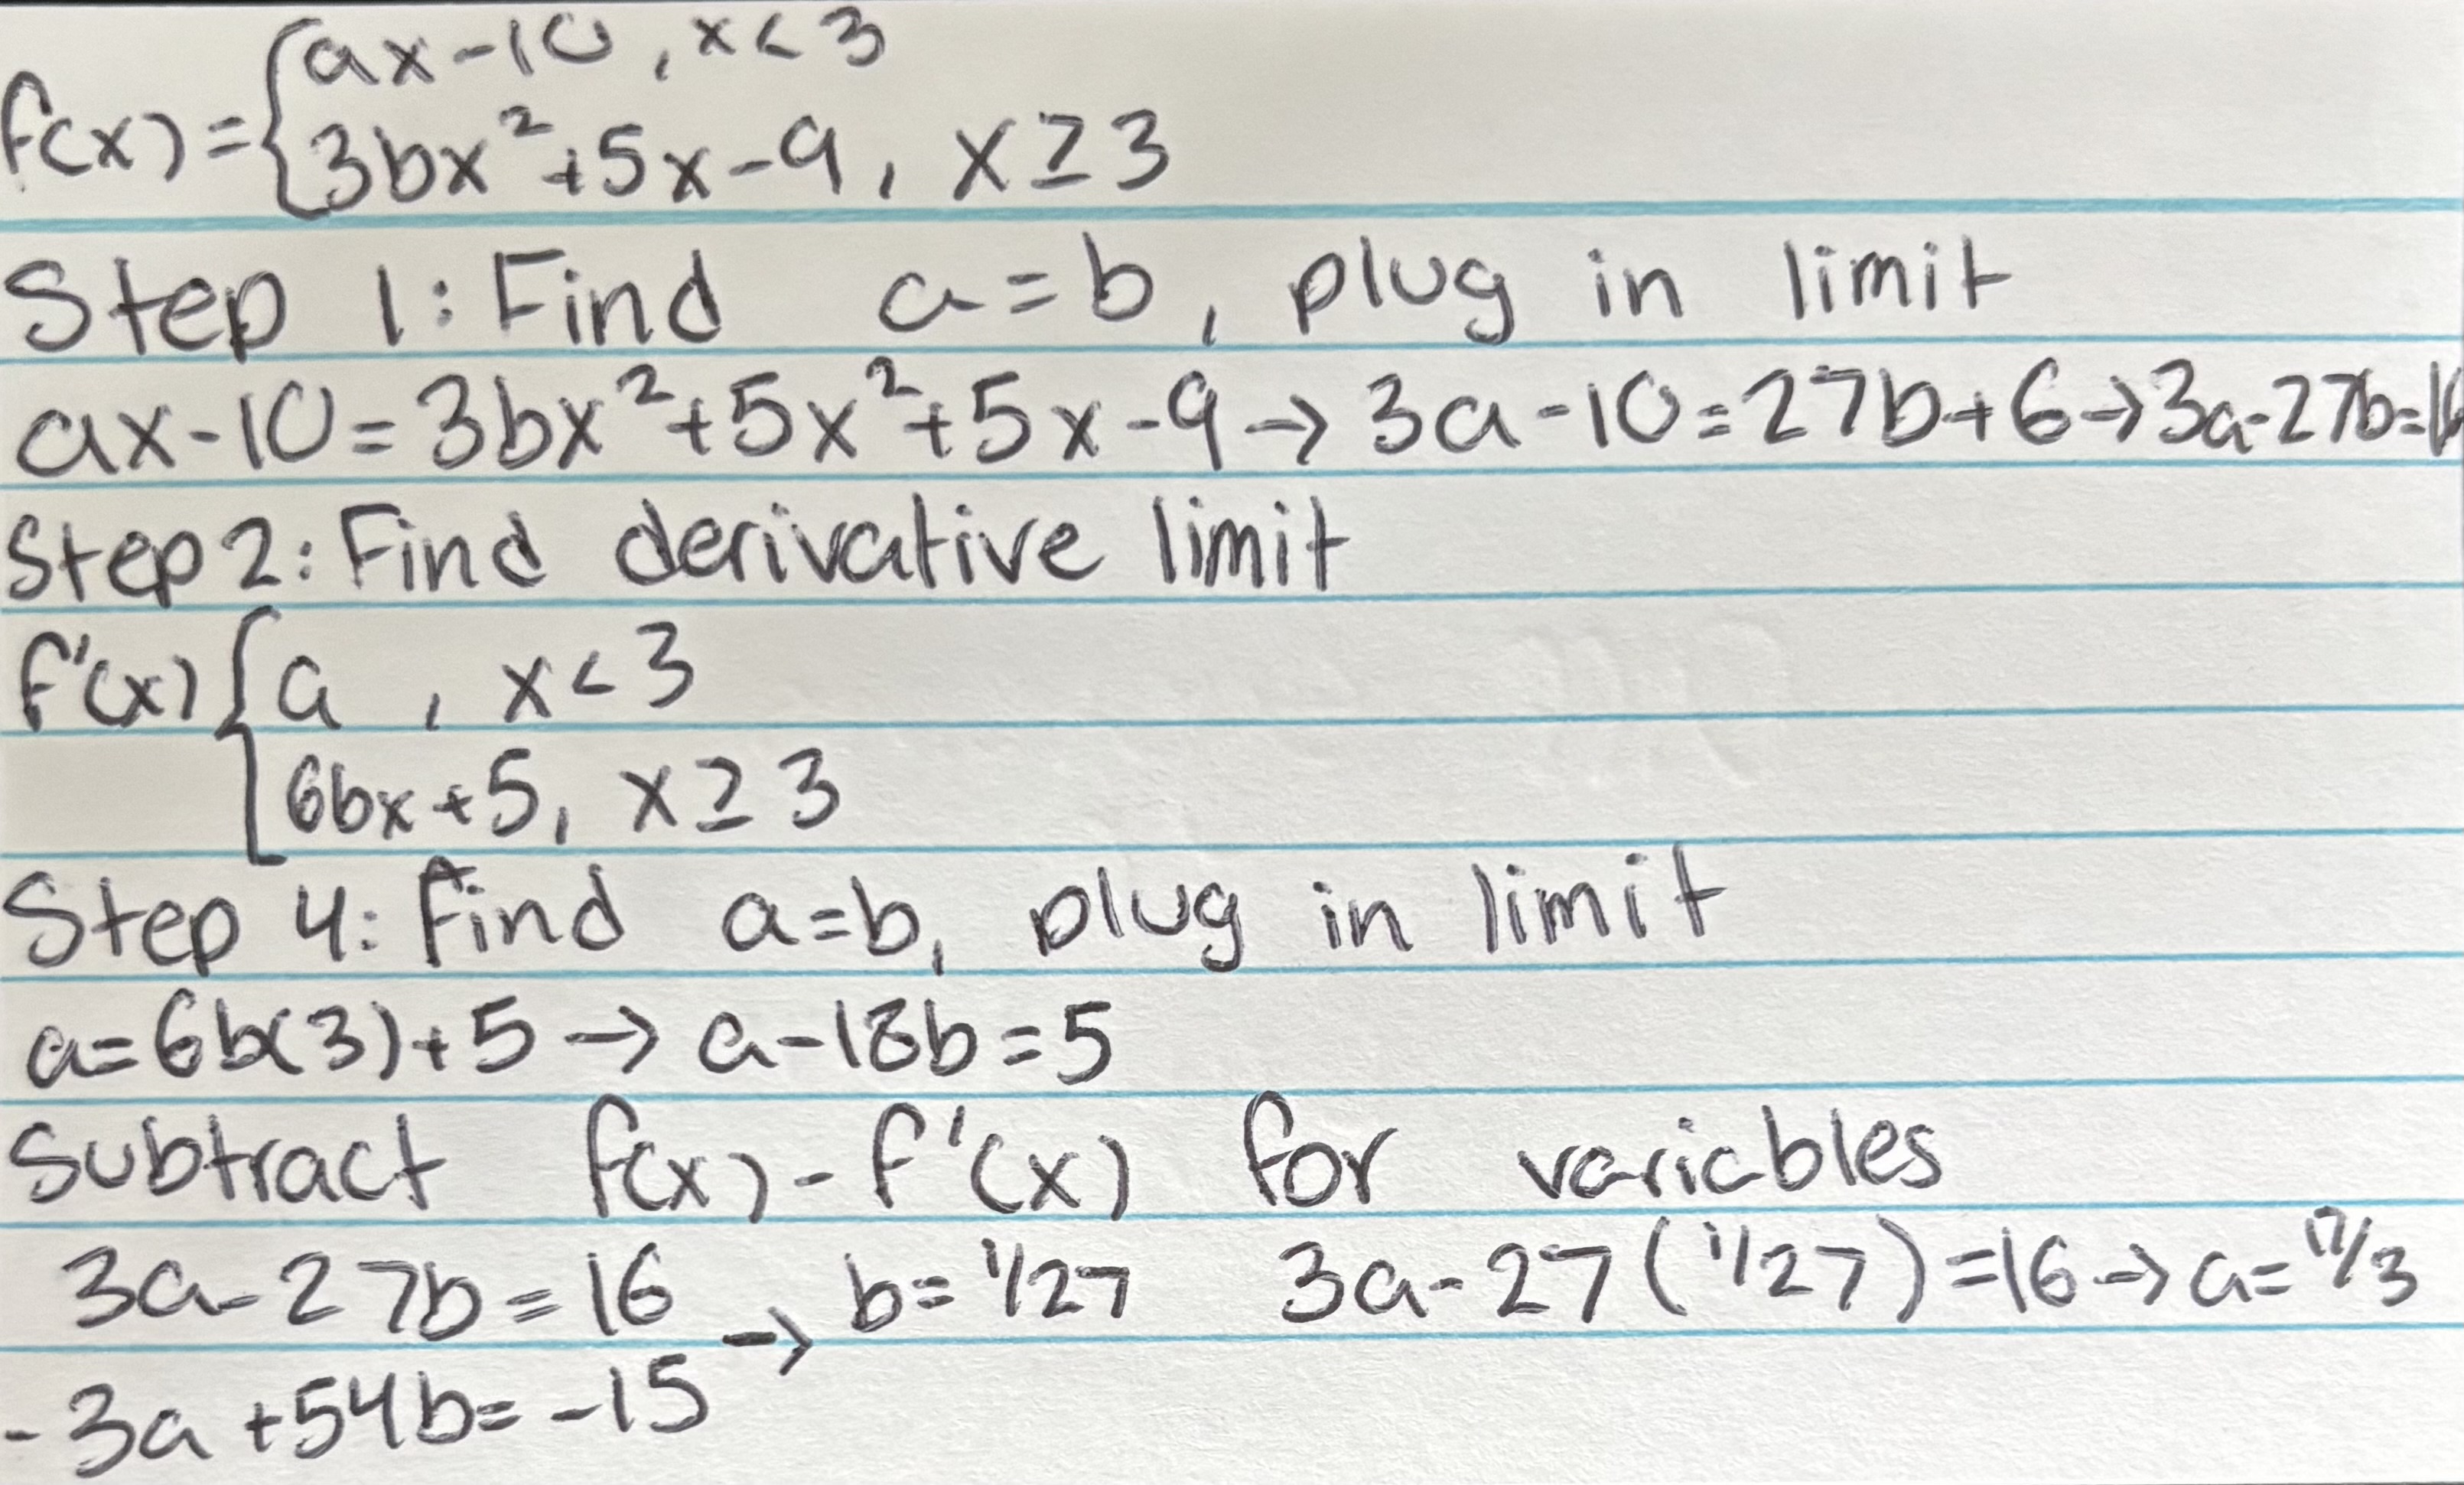 f(x) = { ax - 10 , x < 3
3bx² + 5x - 9 , x ≥ 3
Step 1: Find a = b, plug in limit
ax - 10 = 3bx² + 5x² + 5x - 9 → 3a - 10 = 27b + 6 → 3a - 27b = 16
Step 2: Find derivative limit
f'(x) { a , x < 3
6bx + 5, x ≥ 3
Step 4: Find a = b, plug in limit
a = 6b(3) + 5 → a - 18b = 5
Subtract f(x) - f'(x) for variables
3a - 27b = 16 → b = 1/27 3a - 27(1/27) = 16 → a = 17/3
-3a + 54b = -15